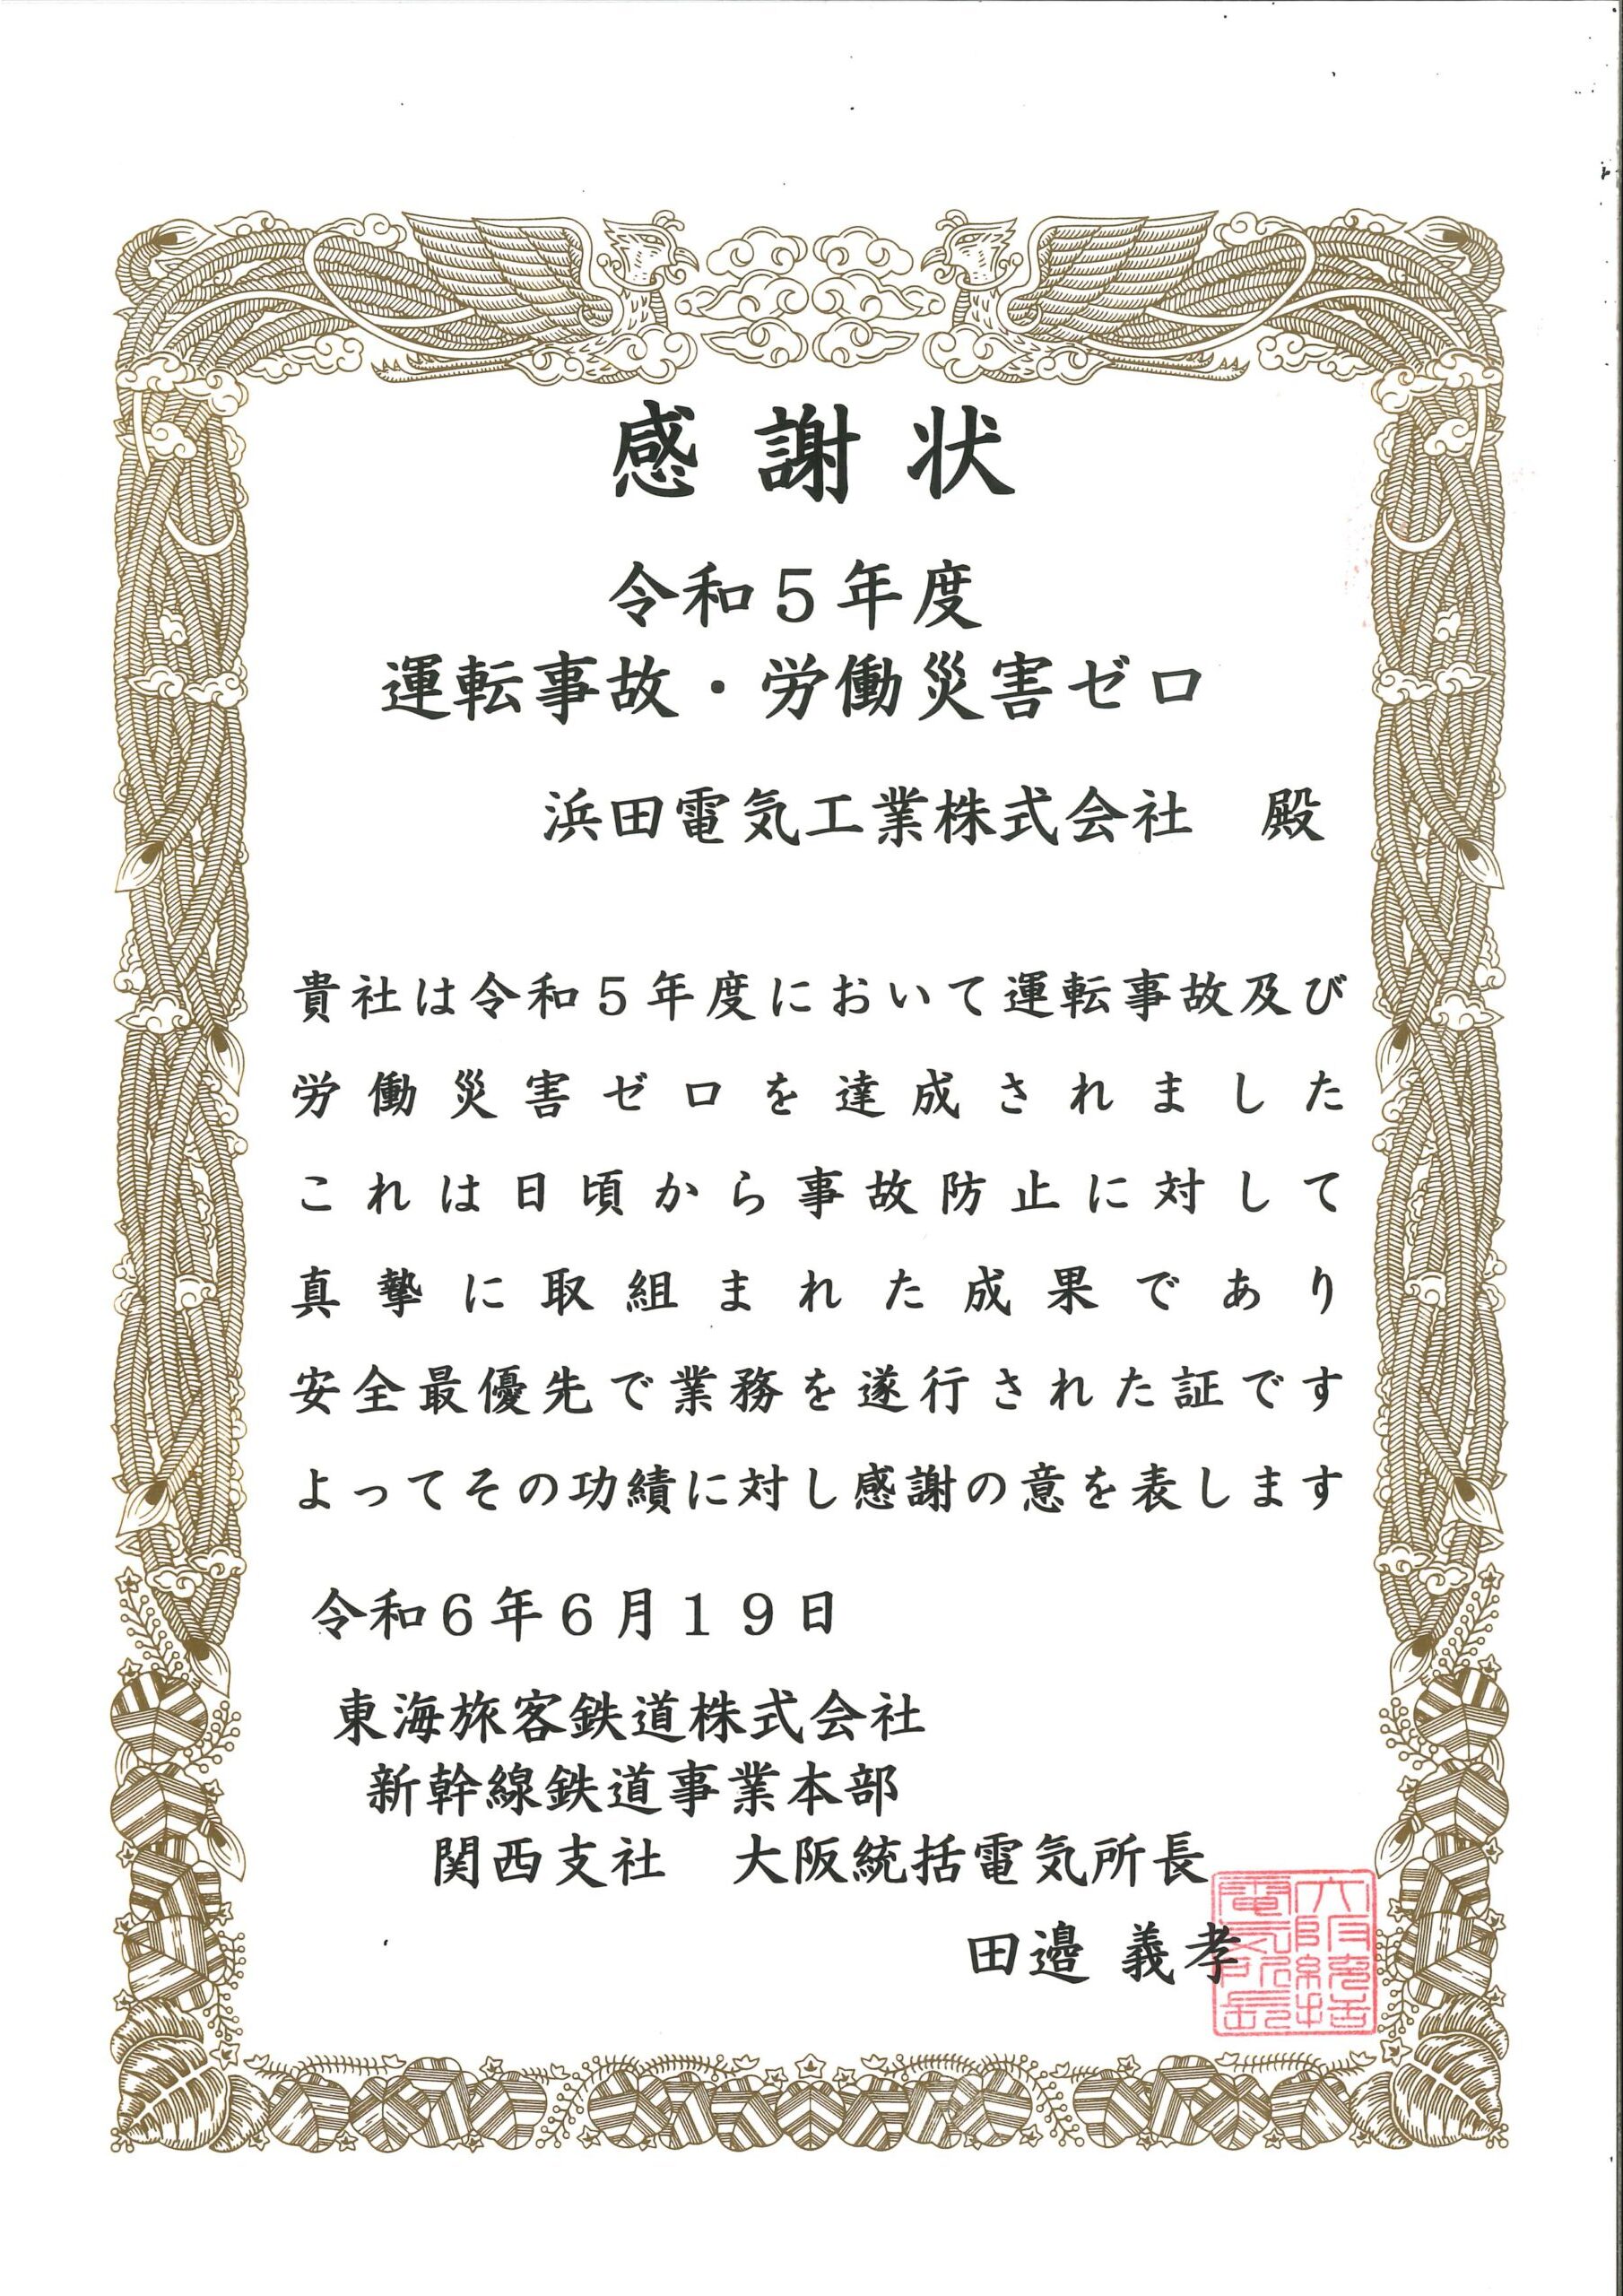 感謝状
令和５年度
運転事故・労働災害ゼロ
浜田電気工業株式会社　殿
貴社は令和５年度において運転事故及び
労働災害ゼロを達成されました
これは日頃から事故防止に対して
真摯に取組まれた成果であり
安全最優先で業務を遂行された証です
よってその功績に対し感謝の意を表します
令和６年６月１９日
東海旅客鉄道株式会社
新幹線鉄道事業本部
関西支社　大阪統括電気所長
田邉 義孝
大阪統括
電気所長